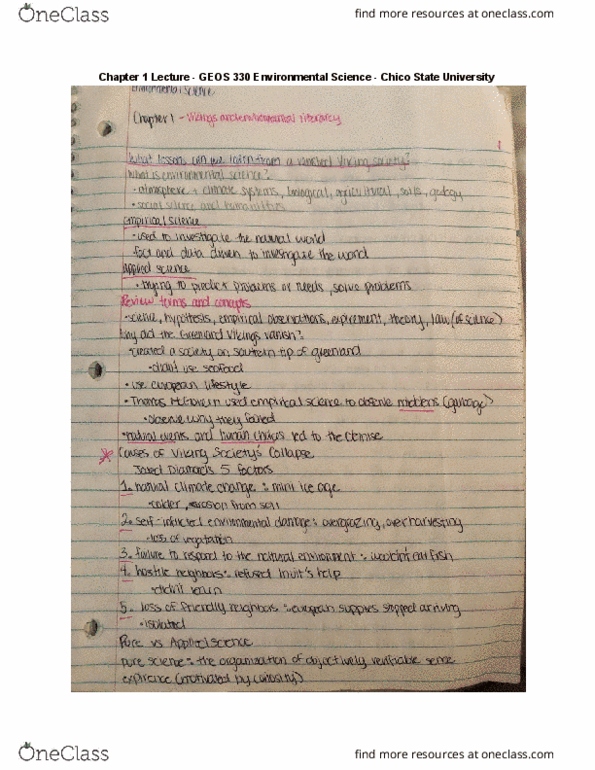 OneClass
find more resources at oneclass.com
Chapter 1 Lecture - GEOS 330 Environmental Science - Chico State University
Environmental Science
Chapter 1 - Vikings and environmental literacy
1
What lesson can we learn from a vanished Viking society?
What is environmental science?
• atmosphere + climate systems, biological, agricultural, soils, geology
• social science and humanities
Empirical Science
• used to investigate the natural world
fact and data driven to investigate the world
Applied science
• trying to predict problems or needs, solve problems
Review terms and concepts
• science, hypothesis, empirical observations, expirement, theory, law (of science)
Why did the Greenland Vikings vanish?
• created a society on southern tip of greenland
• didnt use seafood
• use european lifestyle
• Thomas McGovern used empirical science to observe middens (garbage)
• observe why they failed
• natural events and human choices led to the demise
Causes of Viking Society's Collapse
Jared Diamonds 5 factors
1. natural climate change : mini ice age
• colder, erosion from soil
2. self-inflicted environmental damage : overgrazing, overharvesting
• loss of vegetation
3. failure to respond to the natural environment : wouldn't eat fish
4. hostile neighbors : refused Inuit's help
• didn't learn
5. loss of friendly neighbors : european supplies stopped arriving
• isolated
Pure vs Applied science
pure science : the organization of objectively verifiable sense
expirience (motivated by curiosity)
OneClass
find more resources at oneclass.com